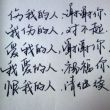 伤我的人,谢谢你
我伤的人,对不起
爱我的人,谢谢你
我爱的人,祝福你
恨我的人,请继续